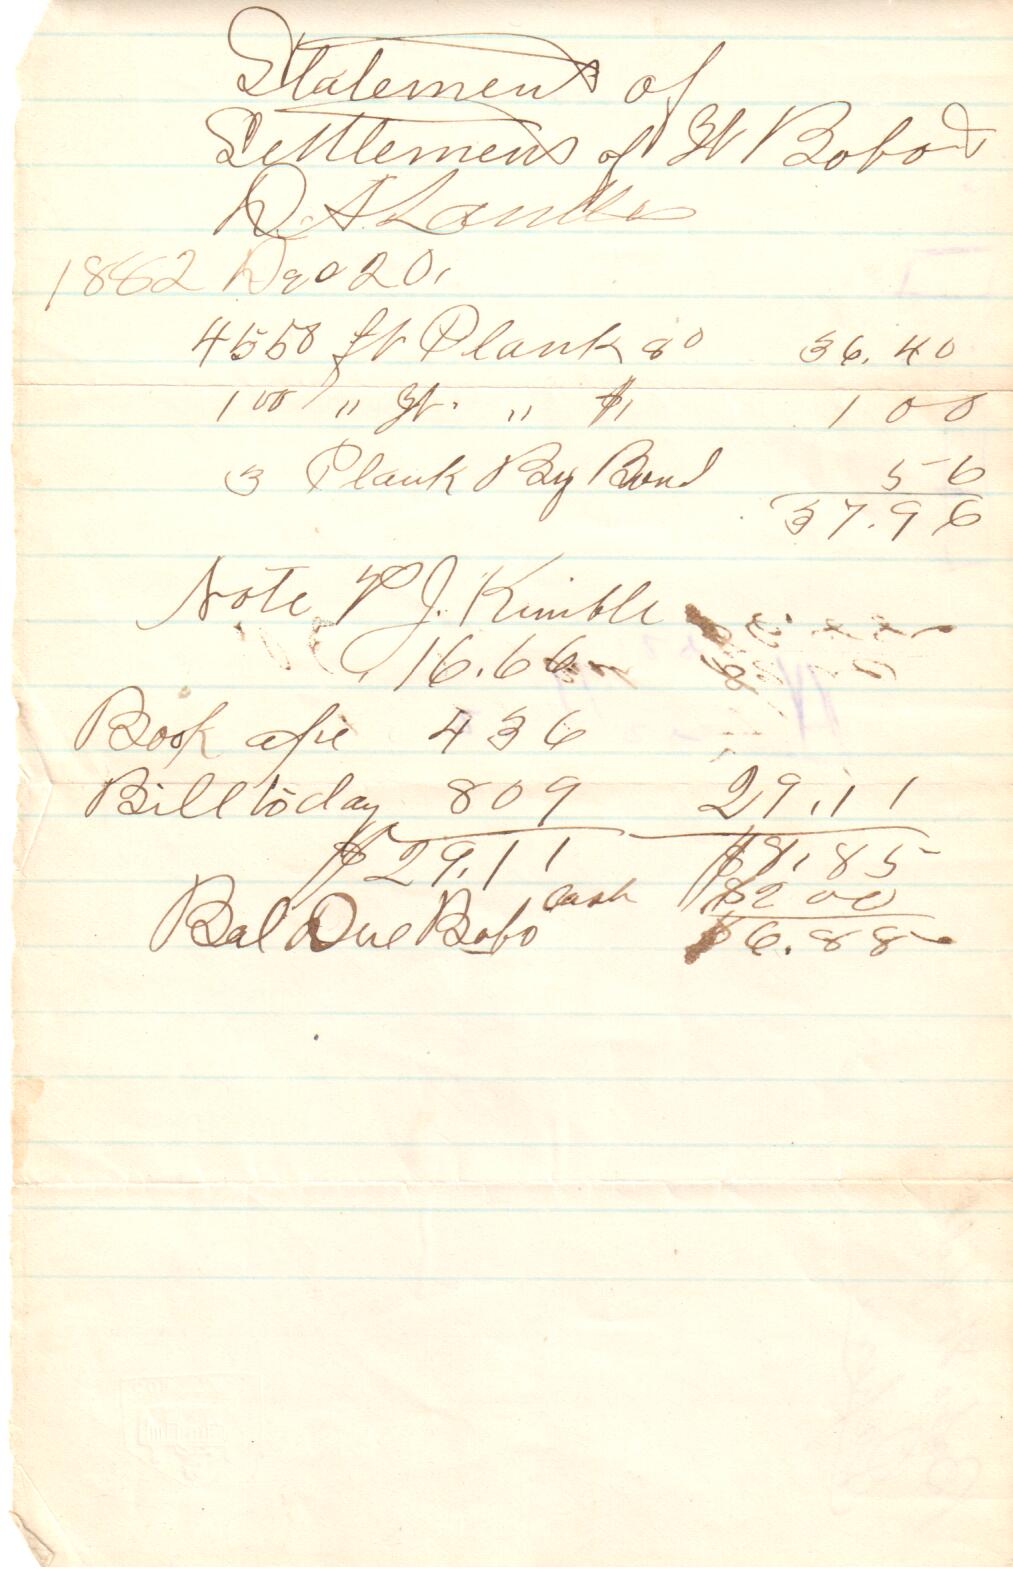 Statement of
Settlement of W Bobo &
D. A. Lantes
1882 Dec 20,
4550 ft Plank 80 36.40
100 " " $1 1 00
3 Plank By Bond 56
37.96
Note P J. Kimble
16.66
Book a/c 4 36
Bill to day 8 09 29.11
$29.11 $8.85
cash $2 00
Bal Due Bobo $6.85